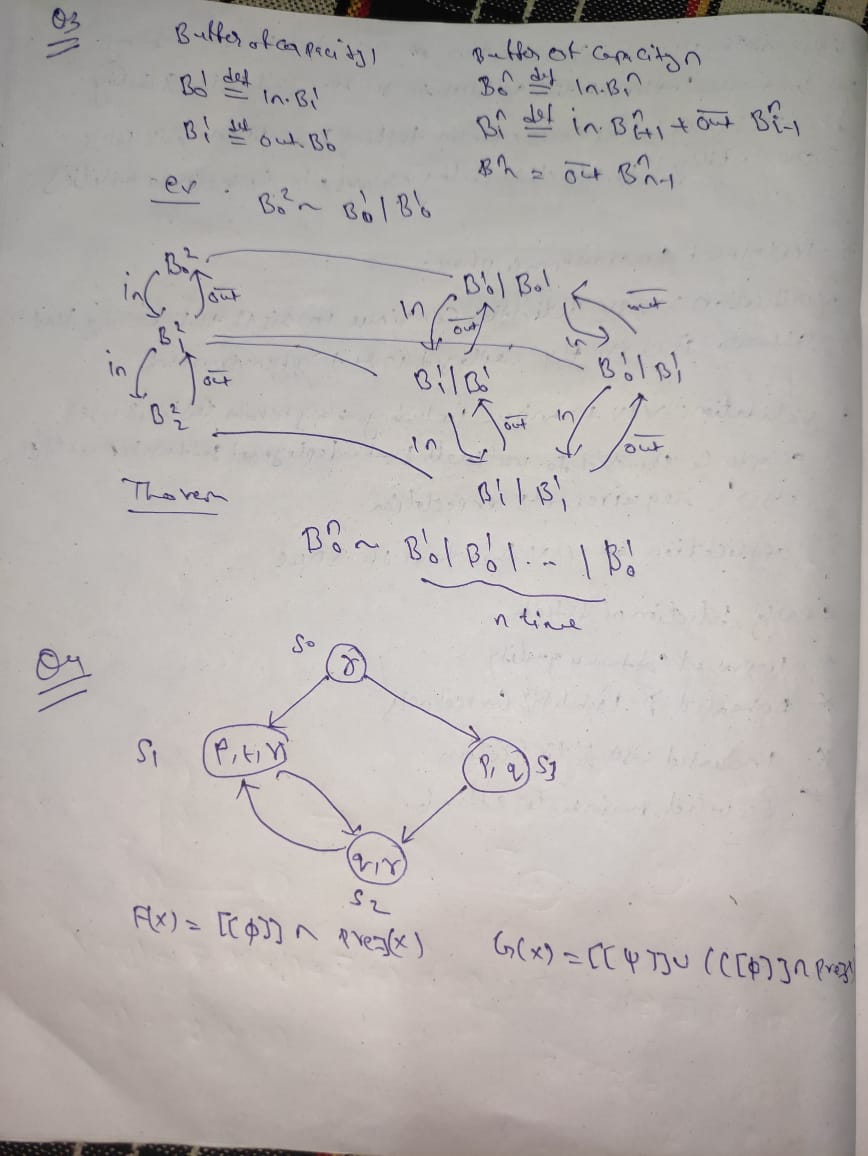 Q3
Buffer of capacity 1
B₀¹ def= in.B₁¹
B₁¹ def= out.B₀¹
Buffer of capacity n
B₀ⁿ def= in.B₁ⁿ
Bᵢⁿ def= in.Bᵢ₊₁ⁿ + o̅u̅t̅ Bᵢ₋₁ⁿ
Bⁿ = o̅u̅t̅ Bₙ₋₁ⁿ
ex: B₀² ~ B₀¹ | B₀¹
B₀²
in o̅u̅t̅
B₁²
in o̅u̅t̅
B₂²
B₀¹ | B₀¹
in o̅u̅t̅ in o̅u̅t̅
B₁¹ | B₀¹ B₀¹ | B₁¹
in o̅u̅t̅ in o̅u̅t̅
B₁¹ | B₁¹
Thorem
B₀ⁿ ~ B₀¹ | B₀¹ | ... | B₀¹
n time
Q4
S₀ r
S₁ p, t, r
p, q S₃
q, r
S₂
F(x) = [[φ]] ∩ pre∃(x)
G(x) = [[ψ]] ∪ ([[φ]] ∩ pre∃